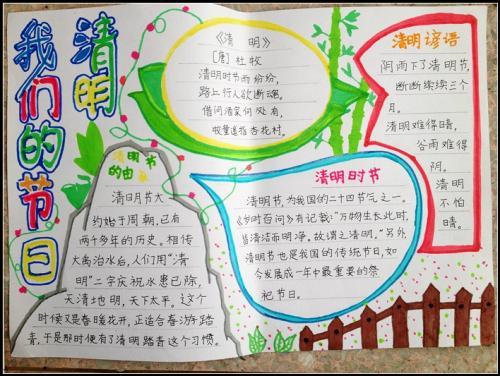 清明
我们的节日
《清 明》
[唐]杜牧
清明时节雨纷纷,
路上行人欲断魂。
借问酒家何处有,
牧童遥指杏花村。
清明谚语
阴雨下了清明节,
断断续续三个
月。
清明难得晴,
谷雨难得
阴。
清明
不怕
晴。
清明节
的由
清明节大
约始于周朝,已有
两千多年的历史。相传
大禹治水后,人们用"清
明"二字庆祝水患已除,
天清地明,天下太平。这个
时候又是春暖花开,正适合春游踏
青,于是那时便有了清明踏青这个习惯。
清明时节
清明节,为我国的二十四节气之一。
《岁时百问》有记载:"万物生长此时,
皆清洁而明净。故谓之清明。"另外,
清明节也是我国的传统节日,如
今发展成一年中最重要的祭
祀节日。